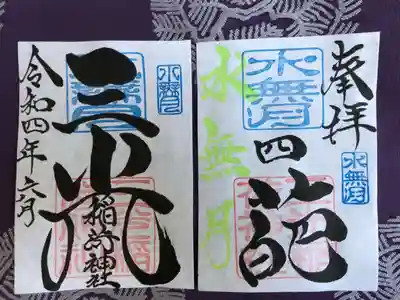 奉拝
水無月
水無月
四葩
水無月
水無月
三光
稲荷神社
令和四年六月